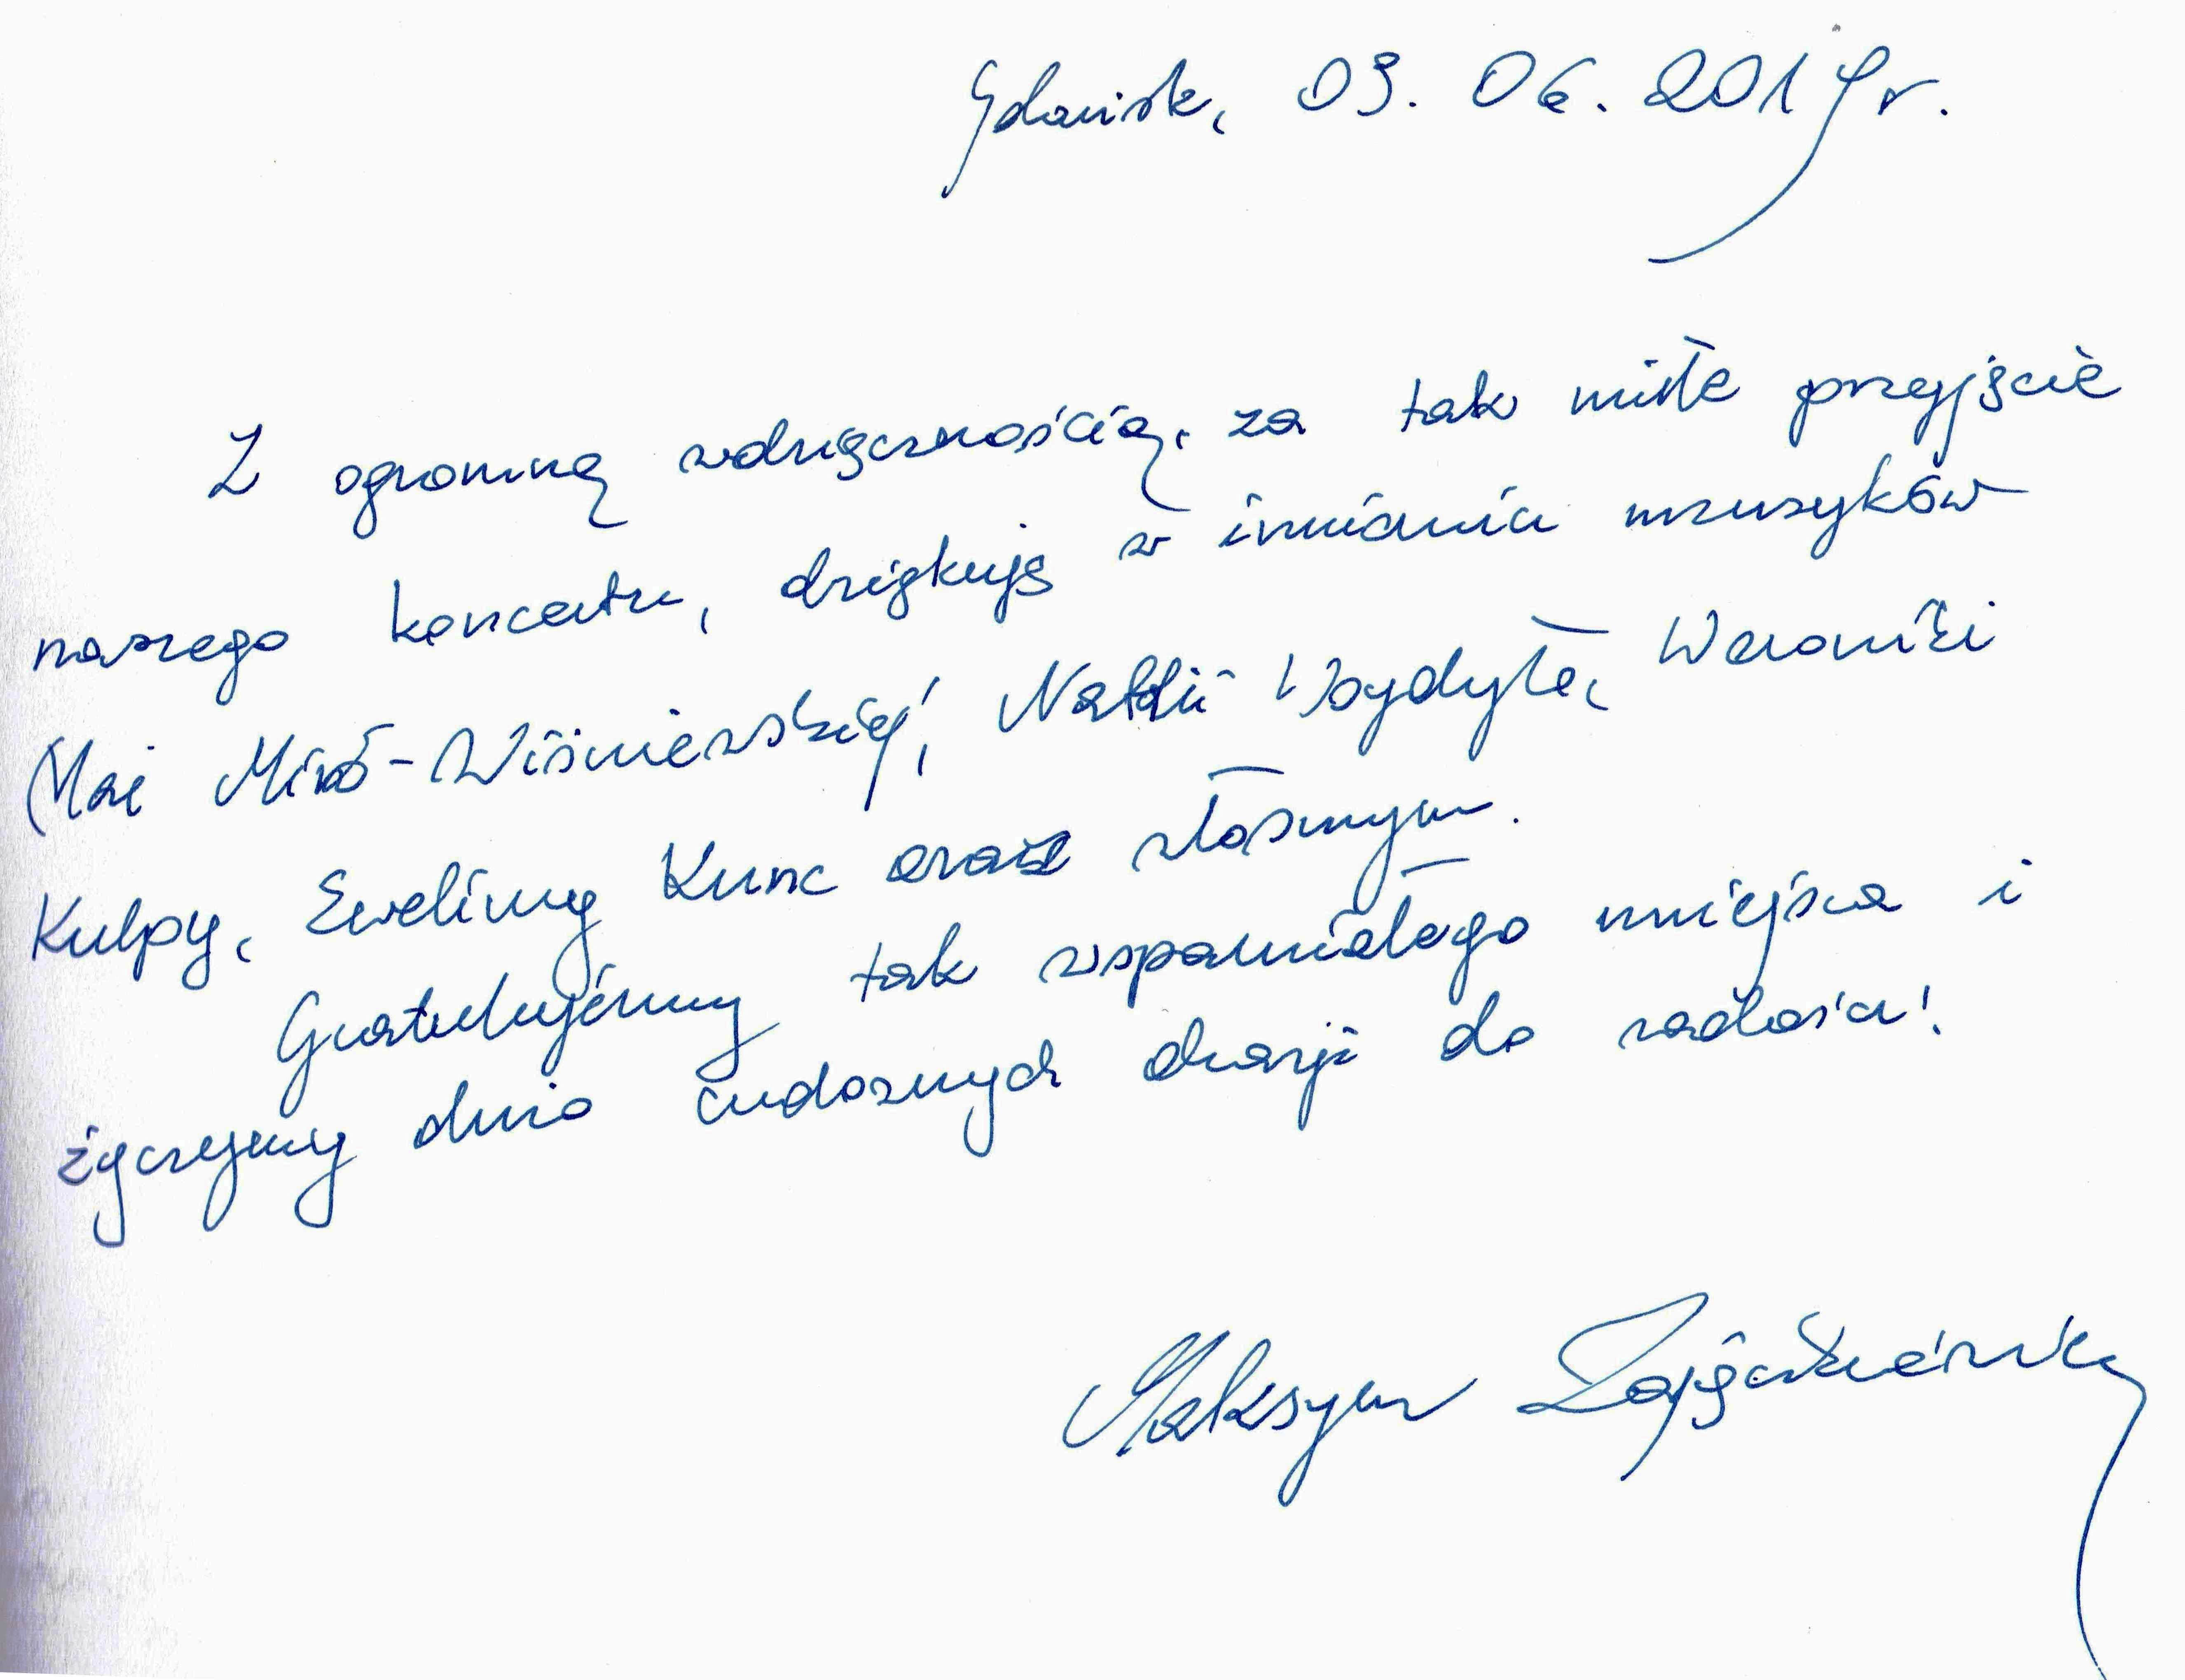 Gdańsk, 09. 06. 2019 r.
Z ogromną wdzięcznością, za tak miłe przyjęcie
naszego koncertu, dziękuję w imieniu muzyków
Mai Miró-Wiśniewskiej, Natalii Weroniki
Kulpy, Eweliny Kunc oraz własnym.
Gratulujemy tak wspaniałego miejsca i
życzymy dużo cudownych okazji do radości!
Maksym Zajączkiewicz